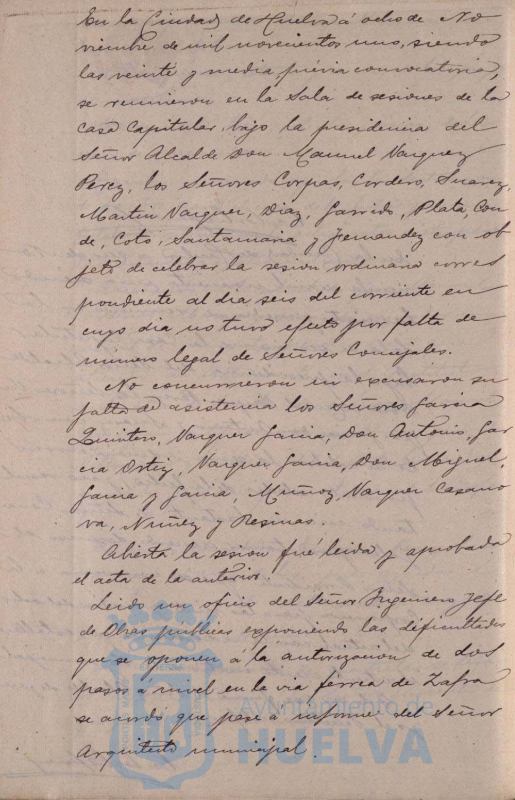 En la Ciudad de Huelva á ocho de No
viembre de mil novecientos uno, siendo
las veinte y media prévia convocatoria,
se reunieron en la Sala de sesiones de la
casa Capitular, bajo la presidencia del
Señor Alcalde Don Manuel Vazquez
Perez, los Señores Corpas, Cordero, Suarez,
Martin Vazquez, Diaz, Garrido, Plata, Con
de, Coto, Santamaria y Fernandez con ob
jeto de celebrar la sesion ordinaria corres
pondiente al dia seis del corriente en
cuyo dia no tuvo efecto por falta de
número legal de Señores Concejales.
No concurrieron ni excusaron su
falta de asistencia los Señores Garcia
Quintero, Vazquez Garcia, Don Antonio, Gar
cia Ortiz, Vazquez Garcia, Don Miguel,
Garcia y Garcia, Muñoz, Vazquez Casano
va, Nuñez y Resinas.
Abierta la sesion fué leida y aprobada
el acta de la anterior.
Leido un oficio del Señor Ingeniero Jefe
de Obras publicas exponiendo las dificultades
que se oponen á la autorizacion de dos
pasos á nivel en la via férrea de Zafra
se acordó que pase á informe del Señor
Arquitecto municipal.
Ayuntamiento de
HUELVA